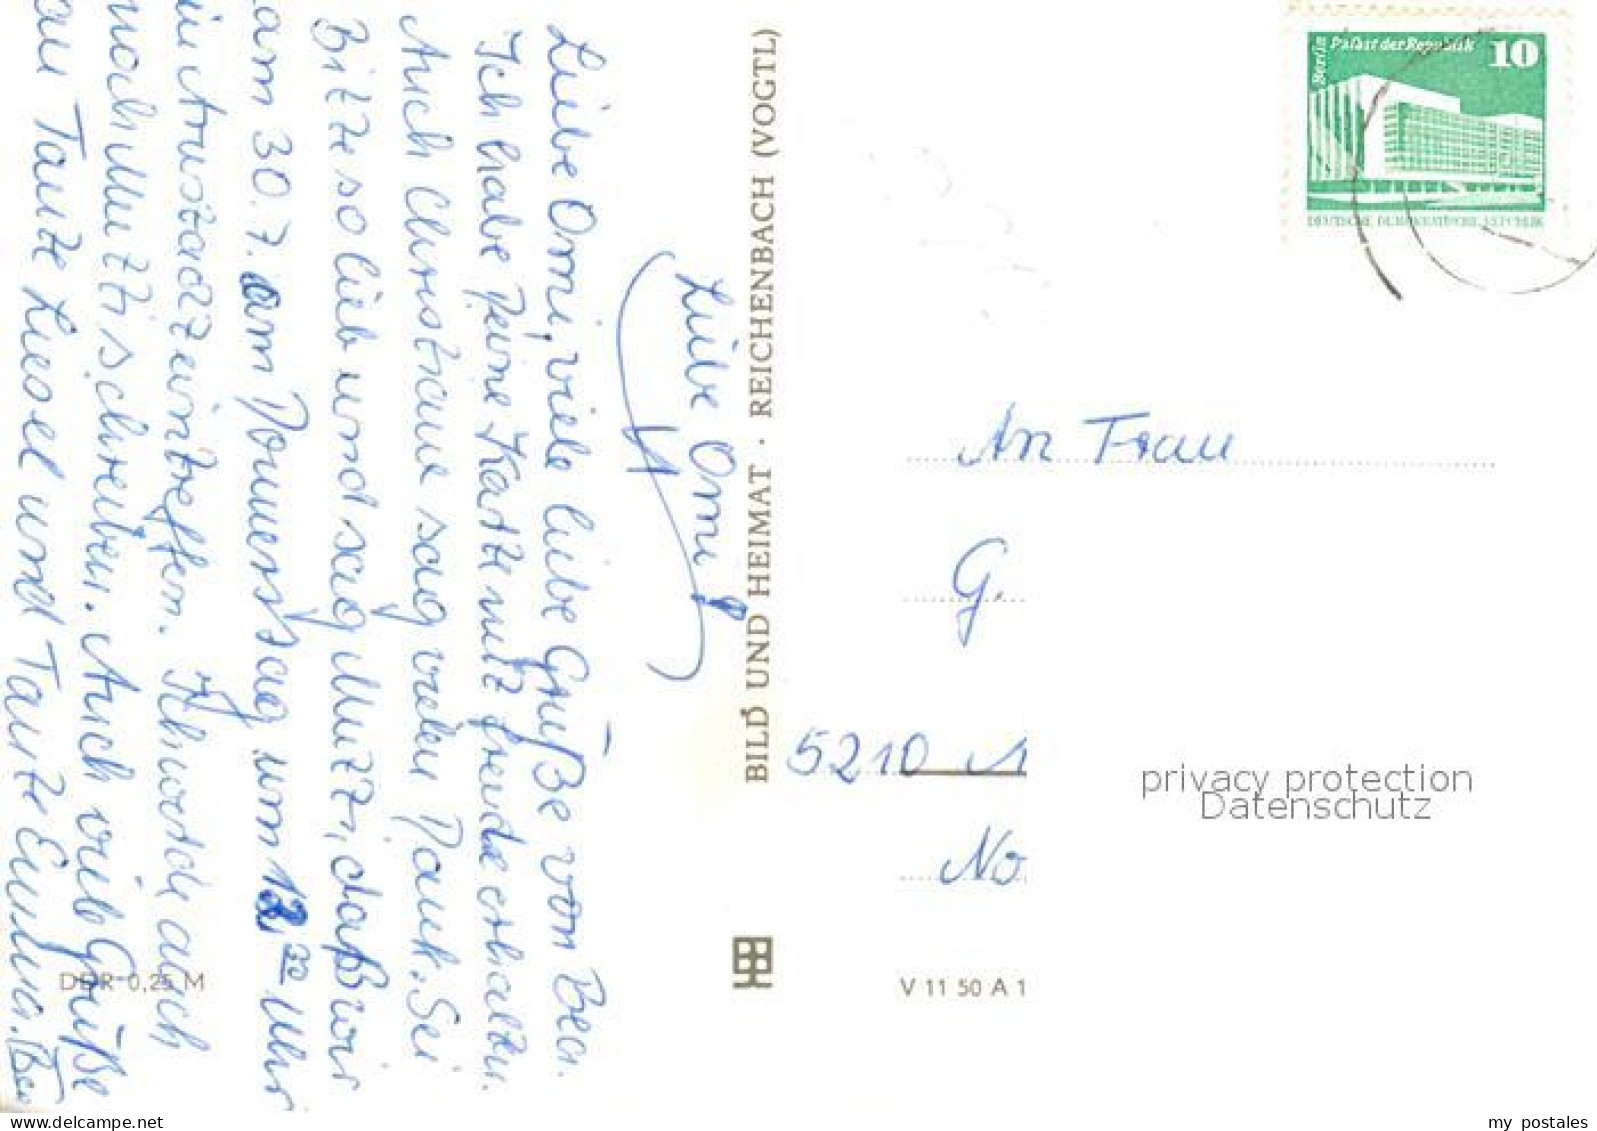 Liebe Omi!
Liebe Omi, viele liebe Grüße von Bea.
Ich habe Deine Karte mit Freude erhalten.
Auch Christiane sag vielen Dank. Sei
Bitte so lieb und sag Mutti, daß wir
am 30.7. am Donnerstag um 13.30 Uhr
in Arnstadt eintreffen. Ich werde auch
noch Mutti schreiben. Auch viele Grüße
an Tante Liesel und Tante Emma. Bea
DDR 0,25 M
BILD UND HEIMAT · REICHENBACH (VOGTL)
Berlin Palast der Republik 10
DEUTSCHE DEMOKRATISCHE REPUBLIK
An Frau
G.
5210 A
No
V 11 50 A 1
privacy protection
Datenschutz
my postales
www.delcampe.net